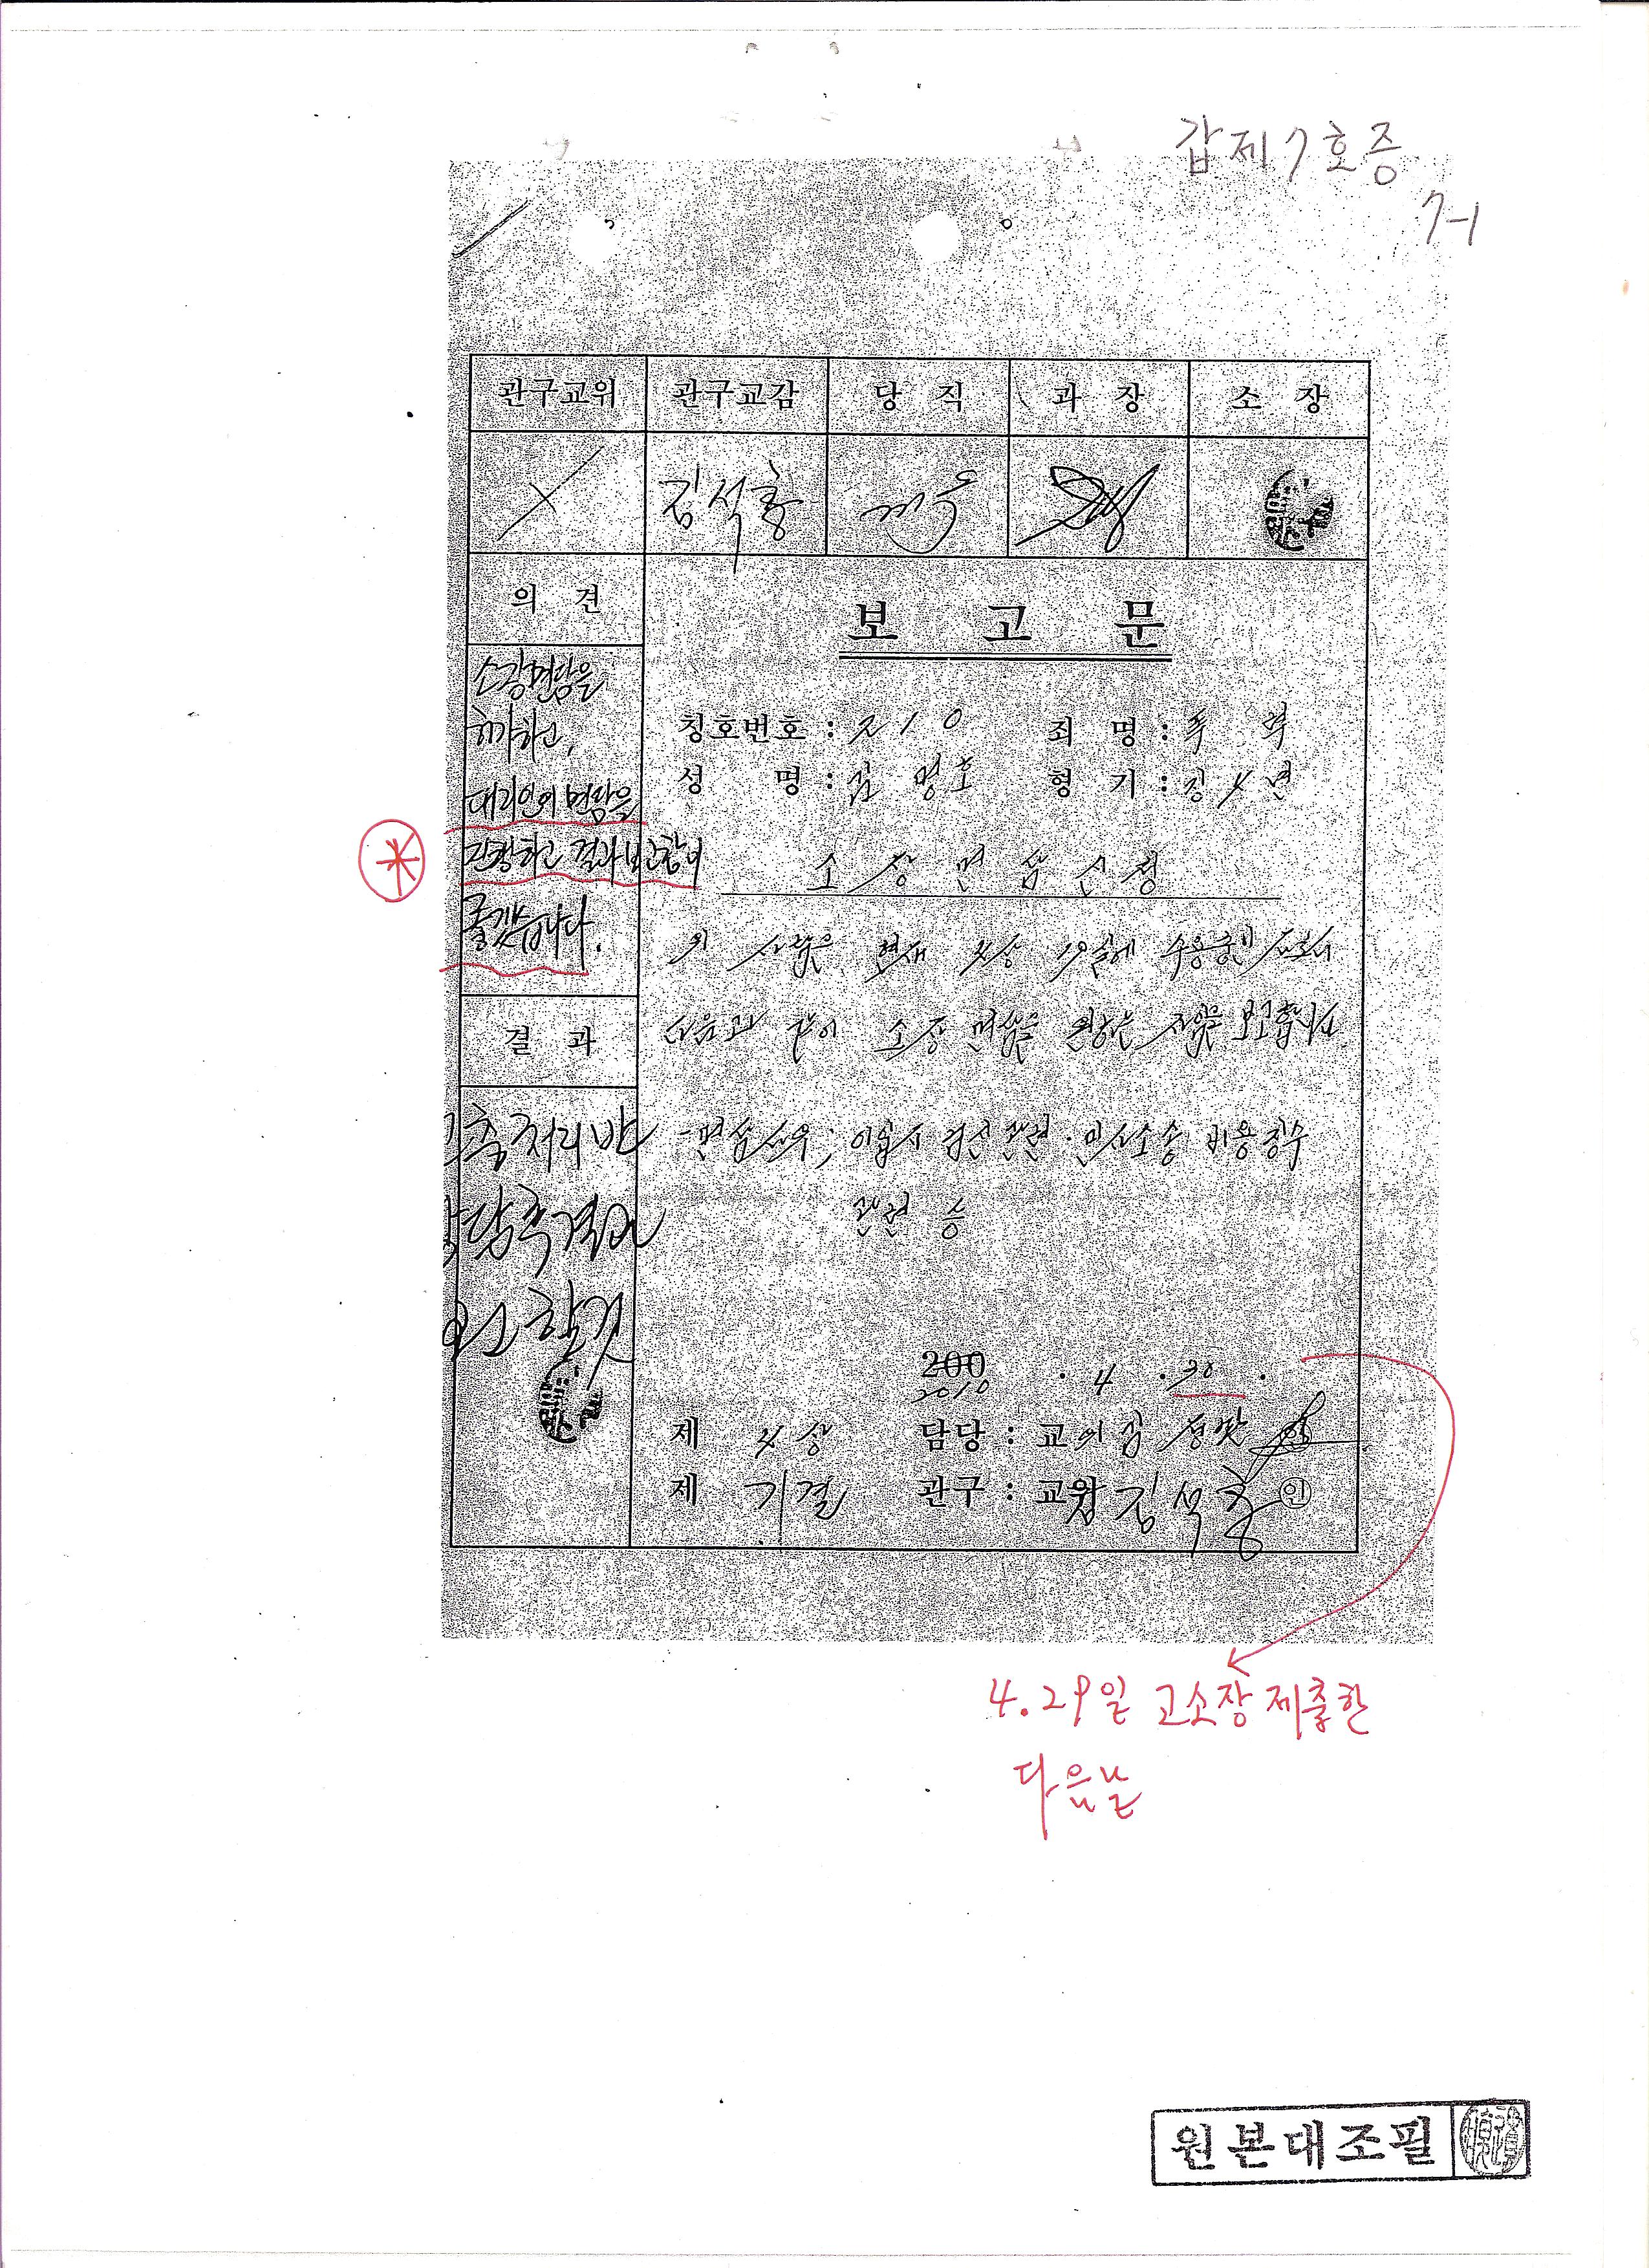 갑제7호증
7-1
관구교위 관구교감 당 직 과 장 소 장
김석흥
의 견
소장면담을
허가하고,
대리인이 면담을
진행하고 결과보고함이
좋겠습니다.
결 과
보 고 문
칭호번호 : 210 죄 명 : 폭 력
성 명 : 김 명호 형 기 : 징 4년
소 장 면 담 신 청
위 사람은 현재 4상 실에 수용중인 자로서
다음과 같이 소장 면담을 원하는 자임을 보고합니다
- 면담사유 ; 이입시 검신 관련 · 민사소송 비용 징수
관련 등
처리반
할것
200
2010 . 4 . 30 .
제 4상 담당 : 교위 김
제 기결 관구 : 교감 김석흥 인
4.29일 고소장 제출한
다음날
원본대조필